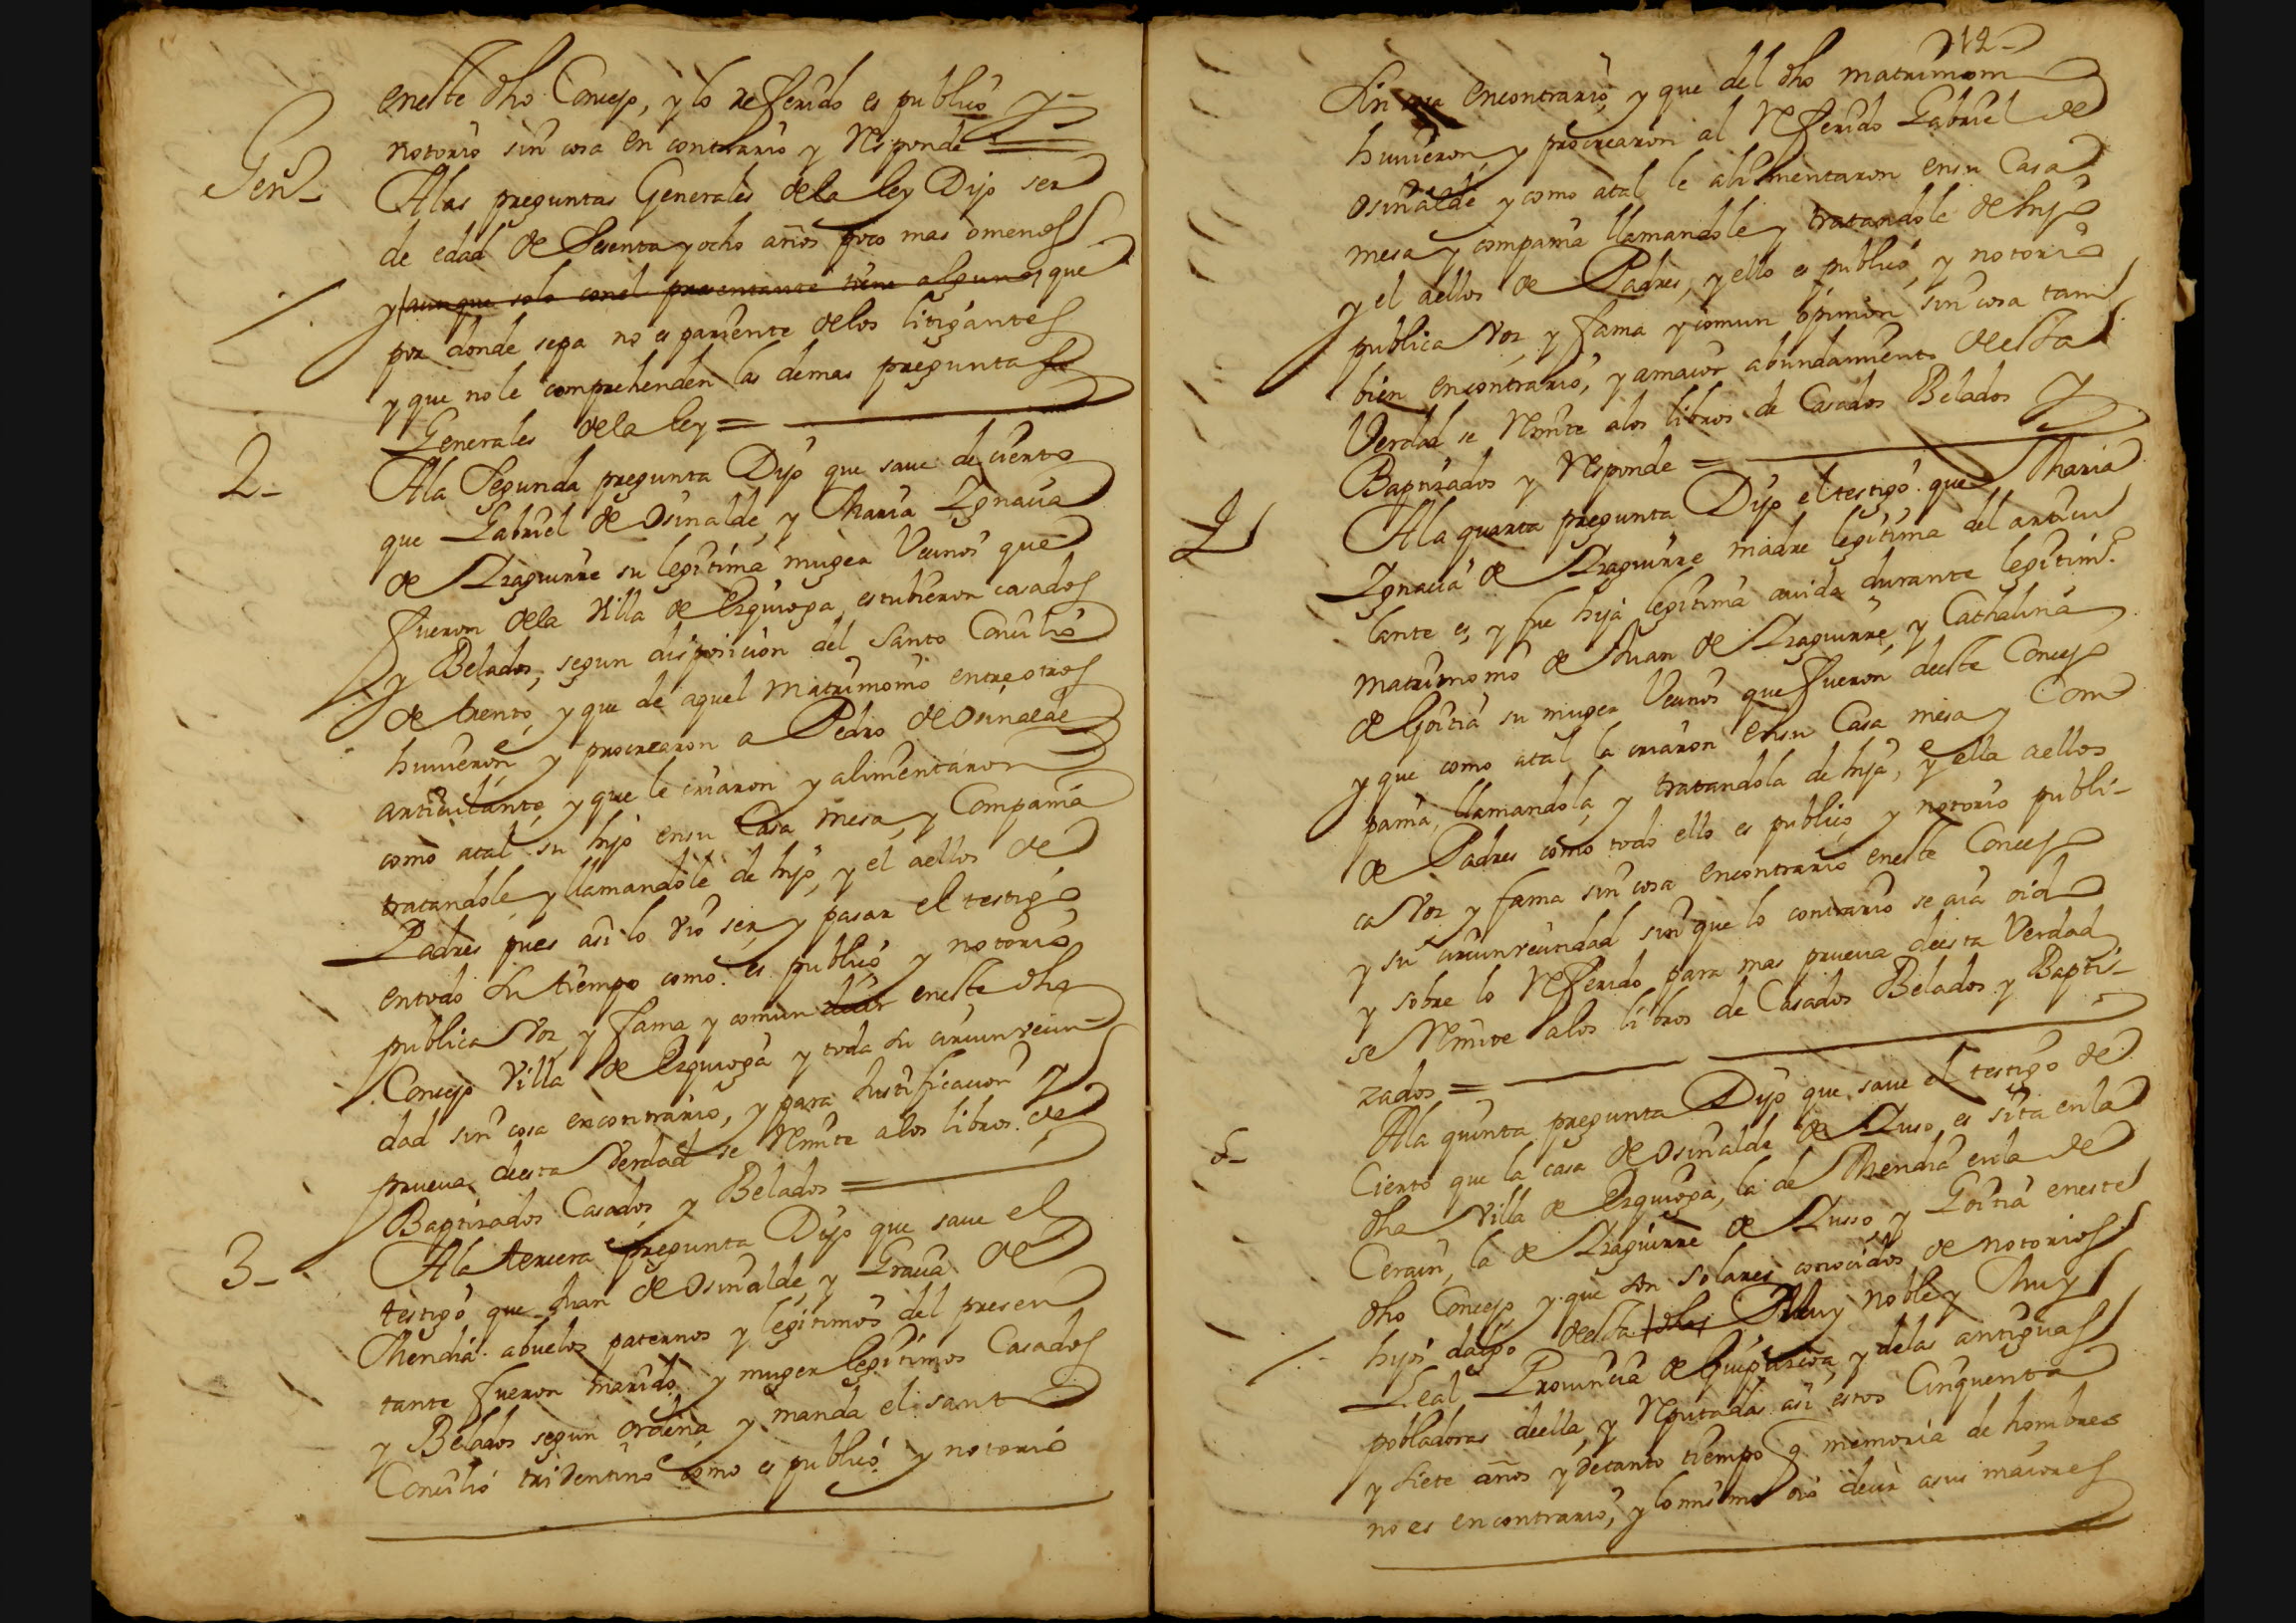 eneste dho Concejo, y lo referido es publico y
notorio sin cosa en contrario y Responde =
Gen̄-
Alas preguntas Generales dela ley Dijo ser
de edad de Sesenta y ocho años poco mas omenos
y aunque solo conel presentante tiene alguno, que
por donde sepa no es pariente delos litigantes
y que nole comprehenden las demas preguntas
Generales dela ley =
2-
Ala Segunda pregunta Dijo que saue de cierto
que Gabriel de Osinalde, y Maria Ignacia
de Izaguirre su legitima muger Vecinos que
fueron dela Villa de Ezquioga, estubieron casados
y Belados, segun disposicion del Santo Concilio
de trento, y que de aquel matrimonio entre otros
huuieron, y procrearon a Pedro de Osinalde
articulante, y que le criaron y alimentaron
como atal su hijo ensu Casa, mesa, y Compania
tratandole, y llamandole de hijo, y el aellos de
Padres pues asi lo vio ser y pasar el testigo
entodo su tiempo como es publico y notorio,
publica Voz, y fama, y comun eneste dho
Concejo Villa de Ezquioga y toda su circunvecin-
dad sin cosa encontrario, y para Justificacion y
prueua deesta Verdad se Remite alos libros de
Baptizados Casados, y Belados =
3-
Ala tercera pregunta Dijo que saue el
testigo que Juan de Osinalde, y Gracia de
Mendia abuelos paternos y legitimos del presen
tante fueron marido, y muger legitimos Casados
y Belados segun ordena y manda el santo
Concilio tridentino como es publico y notorio
12-
Sin cosa encontrario, y que del dho matrimonio
huuieron, y procrearon al Referido Gabriel de
Osinalde y como atal le alimentaron ensu Casa
mesa y compania llamandole y tratandole de hijo
y el aellos de Padres, y ello es publico, y notorio
publica Voz, y fama y comun opinion sin cosa tam
bien encontrario, y amaior abundamiento desta
Verdad se Remite alos libros de Casados Belados y
Baptizados y Responde =
4
Ala quarta pregunta Dijo el testigo que Maria
Ignacia de Izaguirre madre legitima del articu
lante es, y fue hija legitima auida durante legitimo
matrimonio de Juan de Izaguirre, y Cathalina
de Goitia su muger Vecinos que fueron deeste Concejo
y que como atal la criaron ensu Casa mesa y Com
pania, llamandola, y tratandola de hija, y ella aellos
de Padres como todo ello es publico, y notorio publi-
ca Voz y fama sin cosa encontrario eneste Concejo
y su circunvecindad sin que lo contrario se aia oido
y sobre lo Referido para mas prueua deesta Verdad
se Remite alos libros de Casados Belados y Bapti-
zados =
5-
Ala quinta pregunta Dijo que saue el testigo de
Cierto que la casa de Osinalde de Suso, es sita enla
dha Villa de Ezquioga, la de Mendia enla de
Cerain, la de Izaguirre de Susso, y Goitia eneste
dho Concejo, y que son solares conocidos de notorios
hijos dalgo desta dha Muy noble y Muy
Leal Prouincia de Guipuzcoa, y delas antiguas
pobladoras deella, y Reputadas asi estos Cinquenta
y siete años y detanto tiempo q memoria de hombres
no es encontrario, y lo mismo oio decir asus maiores